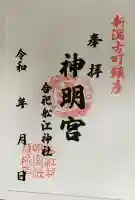 新潟古町鎮座
奉拝
神明宮
合祀船江神社
令和 年 月 日